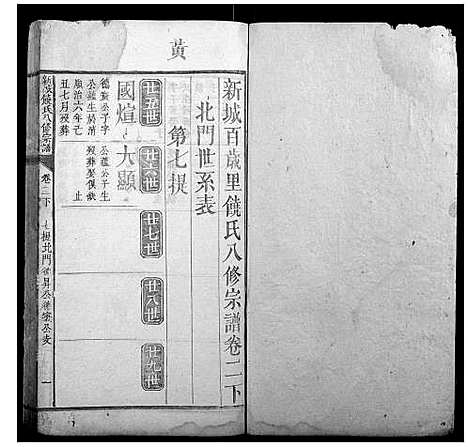 黃
新城百歲里饒氏八修宗譜卷二下
北門世系表
第七提
廿五世
廿六世
廿七世
廿八世
廿九世
國煊
大顯
公蘊公子生
歿葬娶俱缺
止
德資公子字
公蘊生於清
順治六年己
丑七月歿葬
新城饒氏八修宗譜
卷二下
七提北門
昇公
公支
一